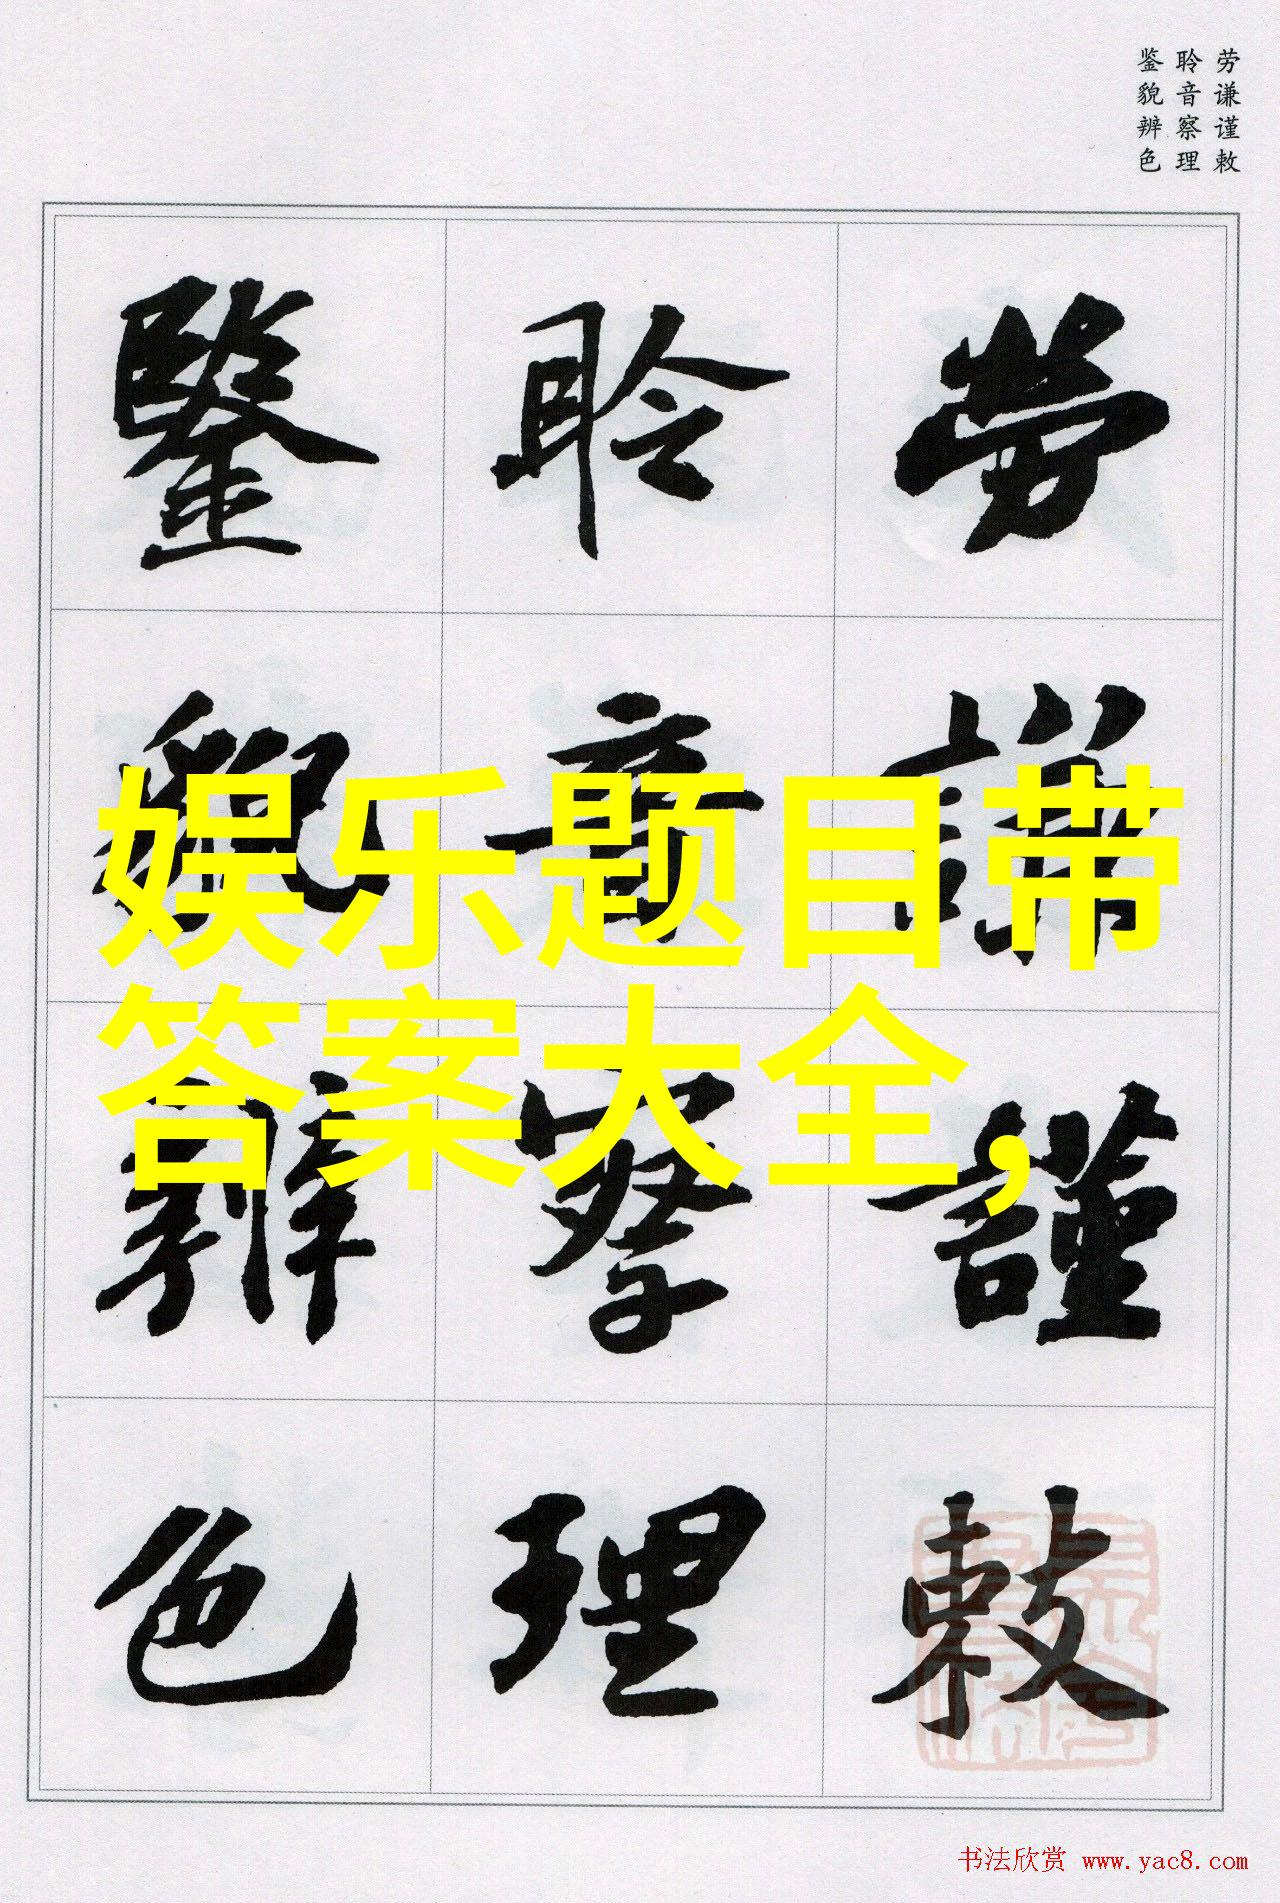 劳谦谨敕
聆音察理
鉴貌辨色
勞謙謹敕
聆音察理
鑒貌辨色
娱乐题目带
答案大全,
书法欣赏 www.yac8.com